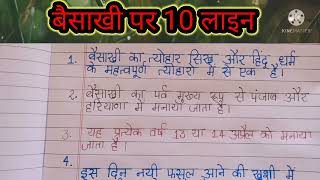 बैसाखी पर 10 लाइन
KINEMASTER
1. बैसाखी का त्योहार सिख और हिंदू धर्म
के महत्वपूर्ण त्योहारों में से एक है।
2. बैसाखी का पर्व मुख्य रूप से पंजाब और
हरियाणा में मनाया जाता है।
3. यह प्रत्येक वर्ष 13 या 14 अप्रैल को मनाया
जाता है।
4.
इस दिन नयी फसल आने की खुशी में